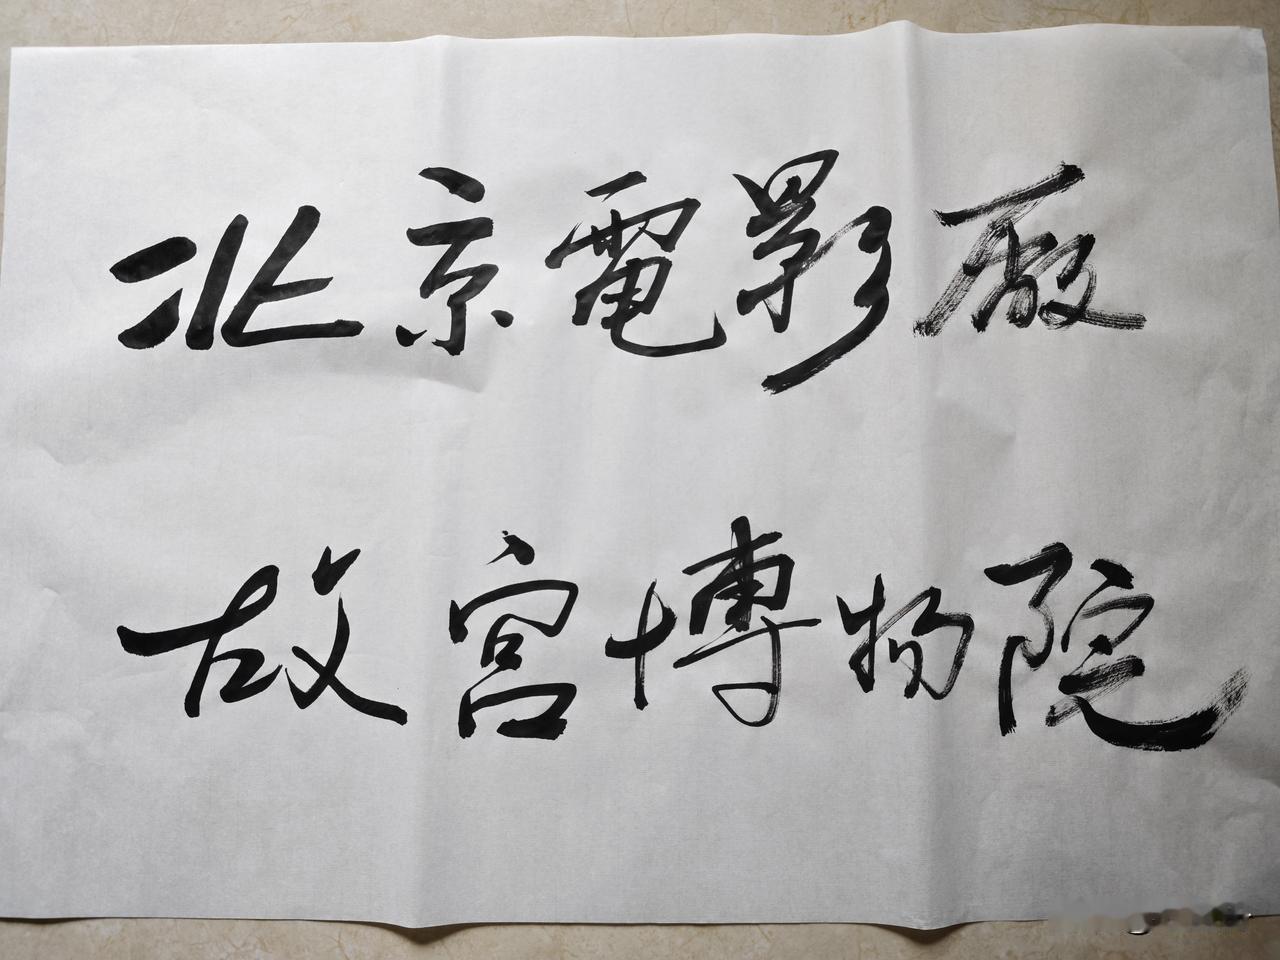 北京電影廠
故宫博物院